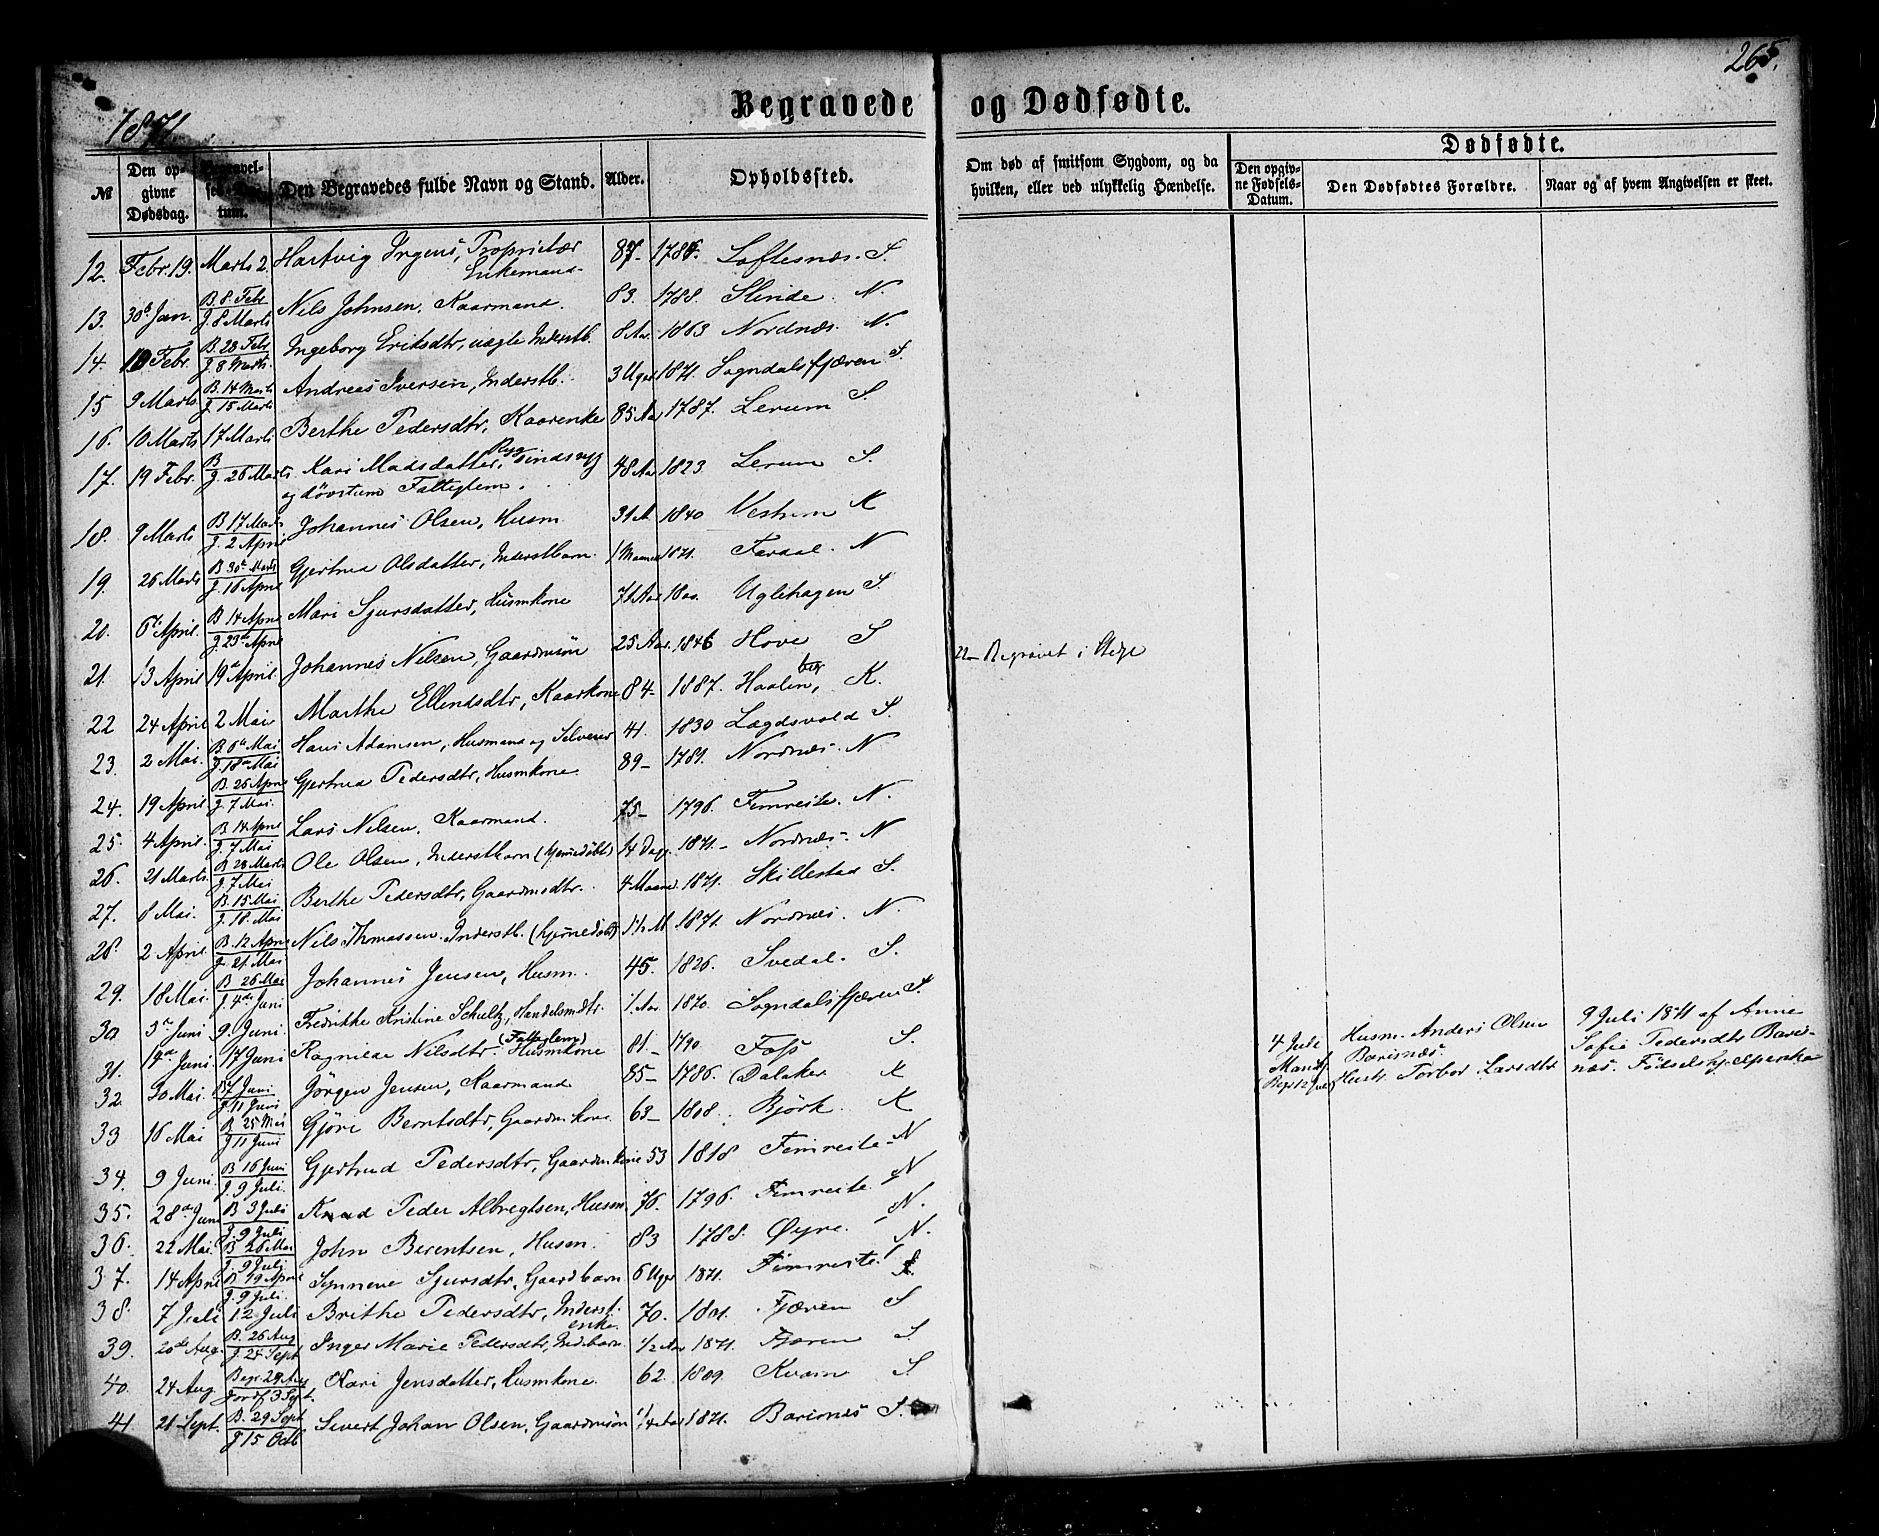 265.
1871.
Begravede og Dødfødte.
№ Den opgivne Dødsdag. Begravelses-Datum. Den Begravedes fulde Navn og Stand. Alder. Opholdssted. Om død af smitsom Sygdom, og da hvilken, eller ved ulykkelig Hændelse. Dødfødte. Den opgivne Fødsels-Datum. Den Dødfødtes Forældre. Naar og af hvem Angivelsen er skeet.
12. Febr. 19. Marts 2. Hartvig Ingens, Proprietær Enkemand 87- 1784. Loftesnæs. S.
13. 30te Jan. B. 8. Febr J. 8 Marts Nils Johnsen, Kaarmand. 83. 1788. Slinde. N.
14. Febr. B. 28 Febr J. 8 Marts. Ingeborg Eriksdtr, uægte Inderstb. 8 Aar. 1863 Nordnæs. N.
15 9 Marts B. 14 Marts J. 15 Marts Andreas Iversen, Inderstb. 3 Uger 1871. Sogndalsfjæren S.
16. 10 Marts 17 Marts Berthe Pedersdtr, Kaarenke 85 Aar 1787. Lerum S.
17. 19 Febr. B J. 26 Marts Kari Madsdatter, sindssyg og døvstum Fattiglem. 48 Aar 1823 Lerum S.
18. 9 Marts B 17 Marts J. 2 April Johannes Olsen, Husm. 31 A 1840 Vestrem K
19. 26 Marts B 30te Marts J. 16 April Gjertrud Olsdatter, Inderstbarn. 1 Maaned 1871. Fardal. N
20. 6te April. B 14 April J. 23de April Mari Sjursdatter, Husmkone 71 Aar 1800. Uglehagen S.
21. 13 April 19de April. Johannes Nilsen, Gaardmsön 25 Aar. 1846 Hove S
22 24 April 2 Mai Marthe Ellendsdtr, Kaarkone 84- 1887. Haalin, berg K. 22- Begravet i Stedje
23. 2 Mai. B. 6te Mai J. 18de Mai Hans Adamsen, Husmand og Selveier 41. 1830 Lægdsvold S.
24. 19 April B. 26 April J. 7 Mai. Gjertrud Pedersdtr, Husmkone. 89- 1781. Nordnæs. N
25. 4 April. B 14 April J. 7 Mai Lars Nilsen, Kaarmand. 75- 1796. Fimreite. N.
26. 21 Marts. B 28 Marts J. 7 Mai Ole Olsen, Inderstbarn (hjemmedöbt) 14 Dage 1871.- Nordnæs- N
27. 8 Mai. B. 15 Mai J. 18. Mai Berthe Pedersdtr, Gaardmsdtr. 4 Maaned. 1871. Skillestad S.
28. 2 April. B. 12 April J. 21. Mai Nils Thomassen. Inderstb. (hjemmedöbt) 1½ M. 1871. Nordnæs. N.
29. 18 Mai. B 26 Mai J. 4de Juni Johannes Jensen, Husm. 45. 1826. Svedal. S.
30 3de Juni 9 Juni. Fredrikke Kristine Schultz, Handelsmdtr. 1. Aar 1870. Sogndalsfjæren S.
31. 14de Juni. 17 Juni Ragnilde Nilsdtr. (Fattiglem) Husmkone 81- 1790 Foss S.
32. 30 Mai. 17 Juni J. 11 Juni Jörgen Jensen, Kaarmand 85- 1786. Dalaker K
33 16 Mai B 25 Mai J 11 Juni Gjöri Berntsdtr, Gaardmkone. 63- 1808. Björk. K
34. 9 Juni. B 16 Juni J. 9 Juli. Gjertrud Pedersdtr, Gaardmkone 53 1818 Fimreite- N
35. 28de Juni B 3 Juli J. 9 Juli Knud Peder Albregtsen, Husm. 76. 1796. Fimreite N
36. 22 Mai. B 26 Mai J. 9 Juli John Berentsen, Husm. 83 1788. Øyre. N.
37. 14 April B 19 April J. 9 Juli. Synneve Sjursdtr, Gaardbarn 6 Uger 1871. Fimreite N.
38. 7 Juli 12 Juli Brithe Pedersdtr, Inderst. enke. 70. 1801. Fjæren S
39. 20de Aug. B. 26 Aug J. 24 Sept Inger Marie Pedersdtr, Indbarn. 1/2 Aar 1871. Fjæren S
40. 24 Aug Begr. 29 Aug Jordf 3 Sept. Kari Jensdatter, Husmkone. 62 1809. Kvam S
41 21 Sept. B. 29 Sept J 15 Octb Sivert Johan Olsen, Gaardmsön 1/4 Aar 1871. Barsnæs S.
4 Juli Mandkj. (Begr 12 Juli) Husm. Anders Olsen Barsnæs. Hustr. Torbor Larsdtr
9 Juli 1871 af Anne Sofie Pedersdtr Barsnæs. Födselshjælperske